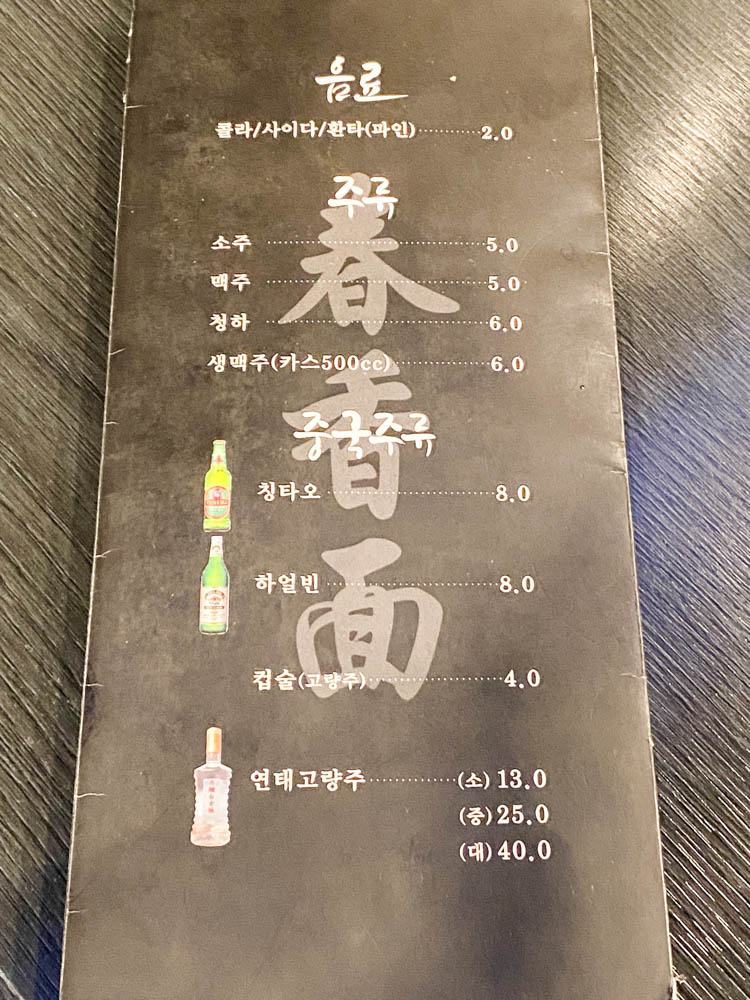 음료
콜라/사이다/환타(파인)··········2.0
주류
소주 ································5.0
맥주 ································5.0
청하 ································6.0
생맥주(카스500cc)··············6.0
중국주류
칭타오 ·························8.0
하얼빈 ·························8.0
컵술(고량주)····················4.0
연태고량주·············(소) 13.0
(중) 25.0
(대) 40.0
春香面